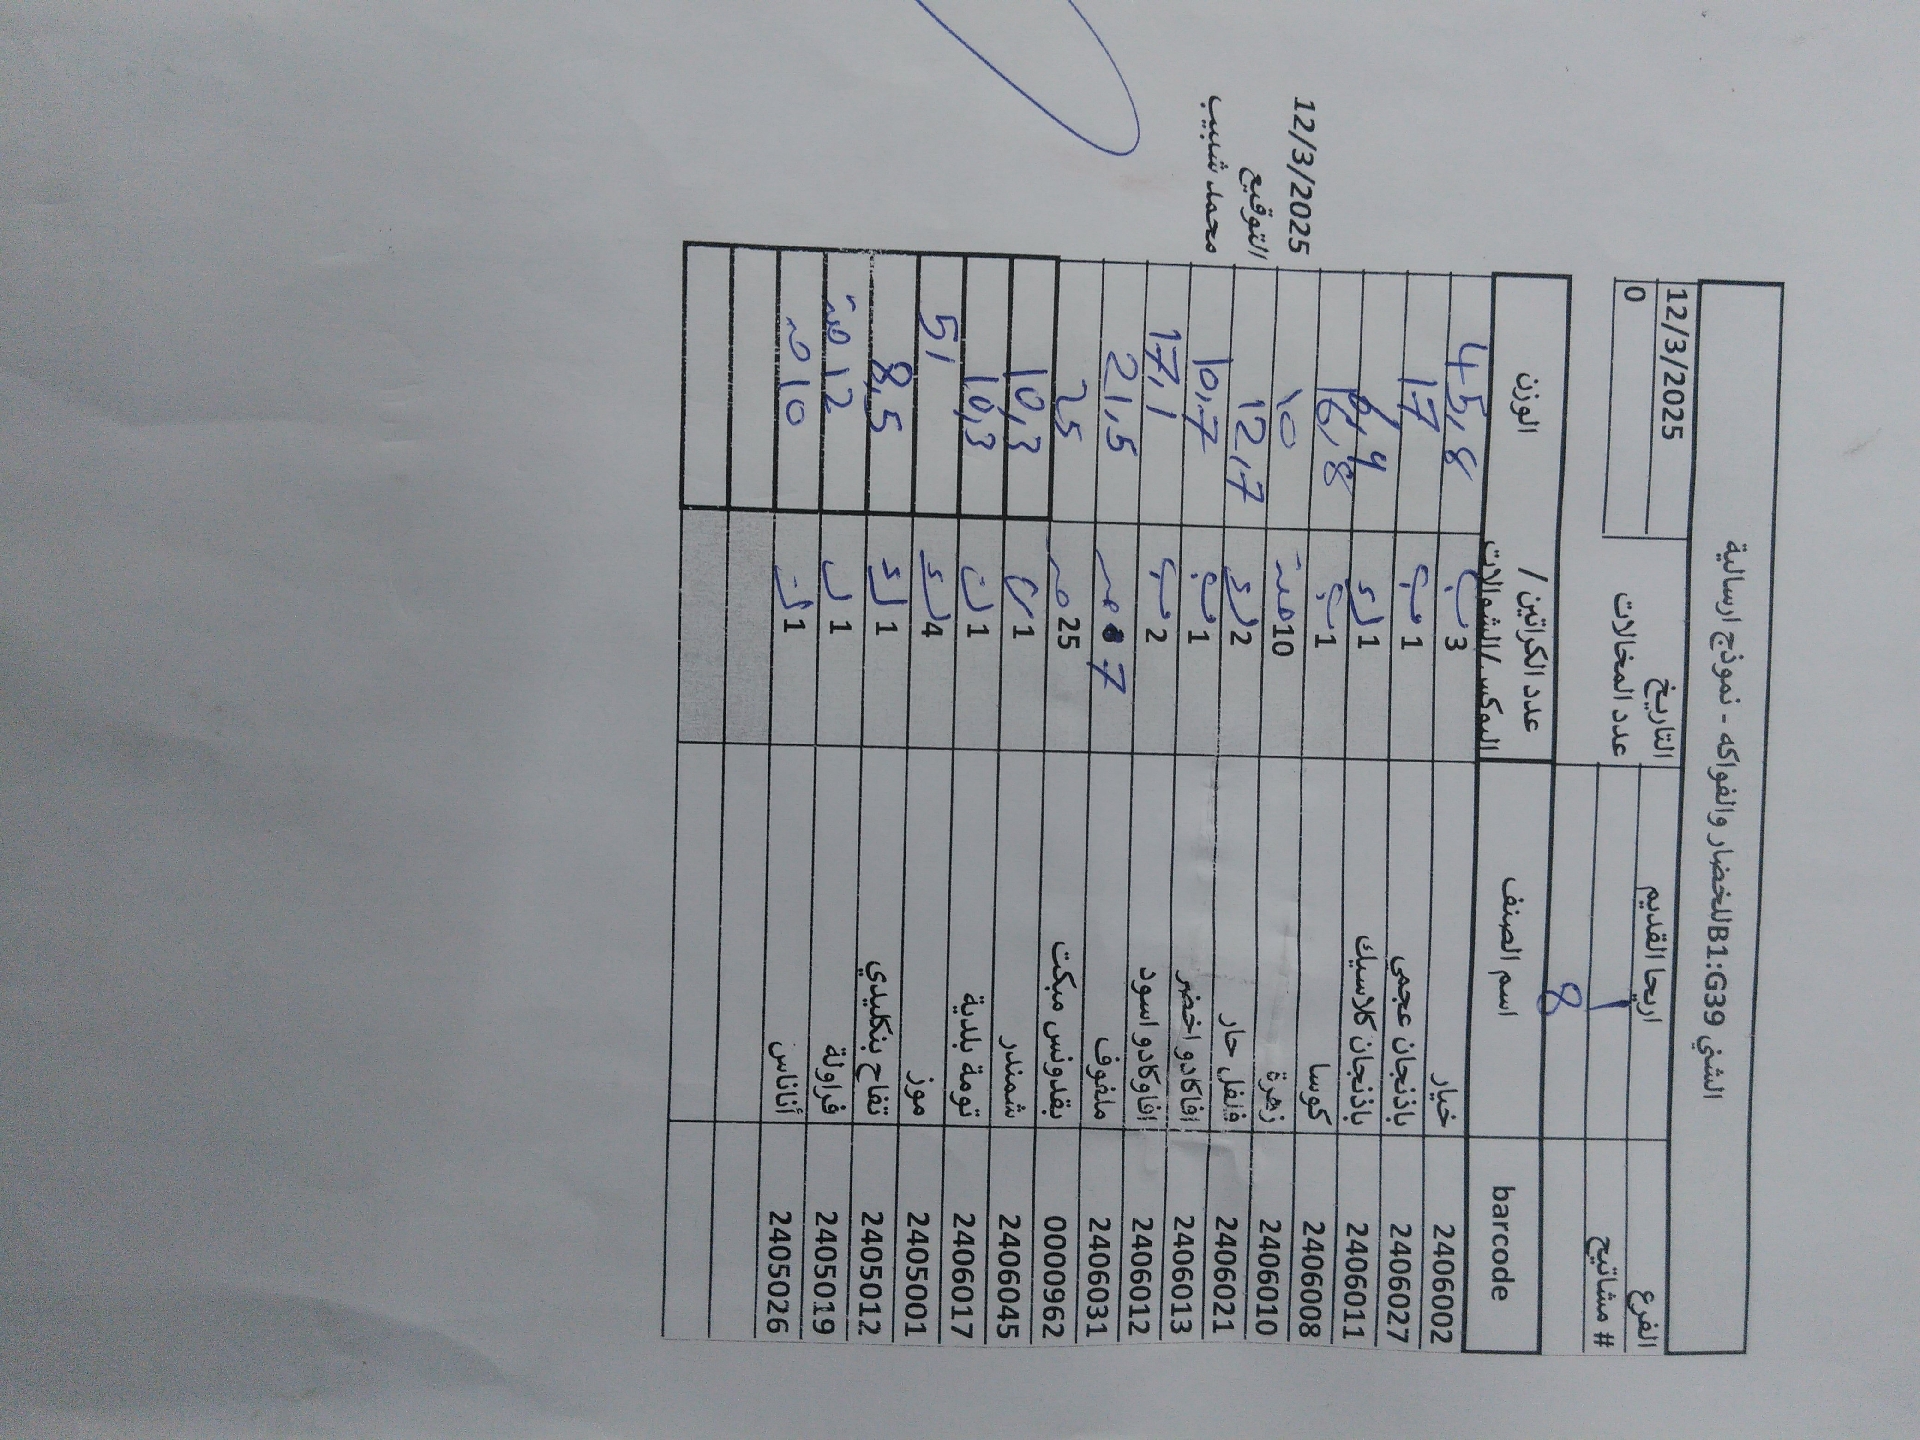 الشني B1:G39للخضار والفواكه - نموذج ارسالية
الفرع اريحا القديم التاريخ 12/3/2025
# مشاتيح 1 عدد المخالات 0
8
barcode اسم الصنف عدد الكراتين / البوكس/الشوالات الوزن
2406002 خيار 3 ب 45,8
2406027 باذنجان عجمي 1 ب 17
2406011 باذنجان كلاسيك 1 6,9
2406008 كوسا 1 ب 16,8
2406010 زهرة 10 حبة 10
2406021 فلفل حار 2 12,7
2406013 افاكادو اخضر 1 ب 10,7
2406012 افاوكادو اسود 2 ب 17,1
2406031 ملفوف 7 21,5
0000962 بقدونس مبكت 25 25
2406045 شمندر 1 10,3
2406017 تومة بلدية 1 10,3
2405001 موز 4 51
2405012 تفاح بنكليدي 1 8,5
2405019 فراولة 1 12
2405026 أناناس 1 10
12/3/2025
التوقيع
محمد شبيب